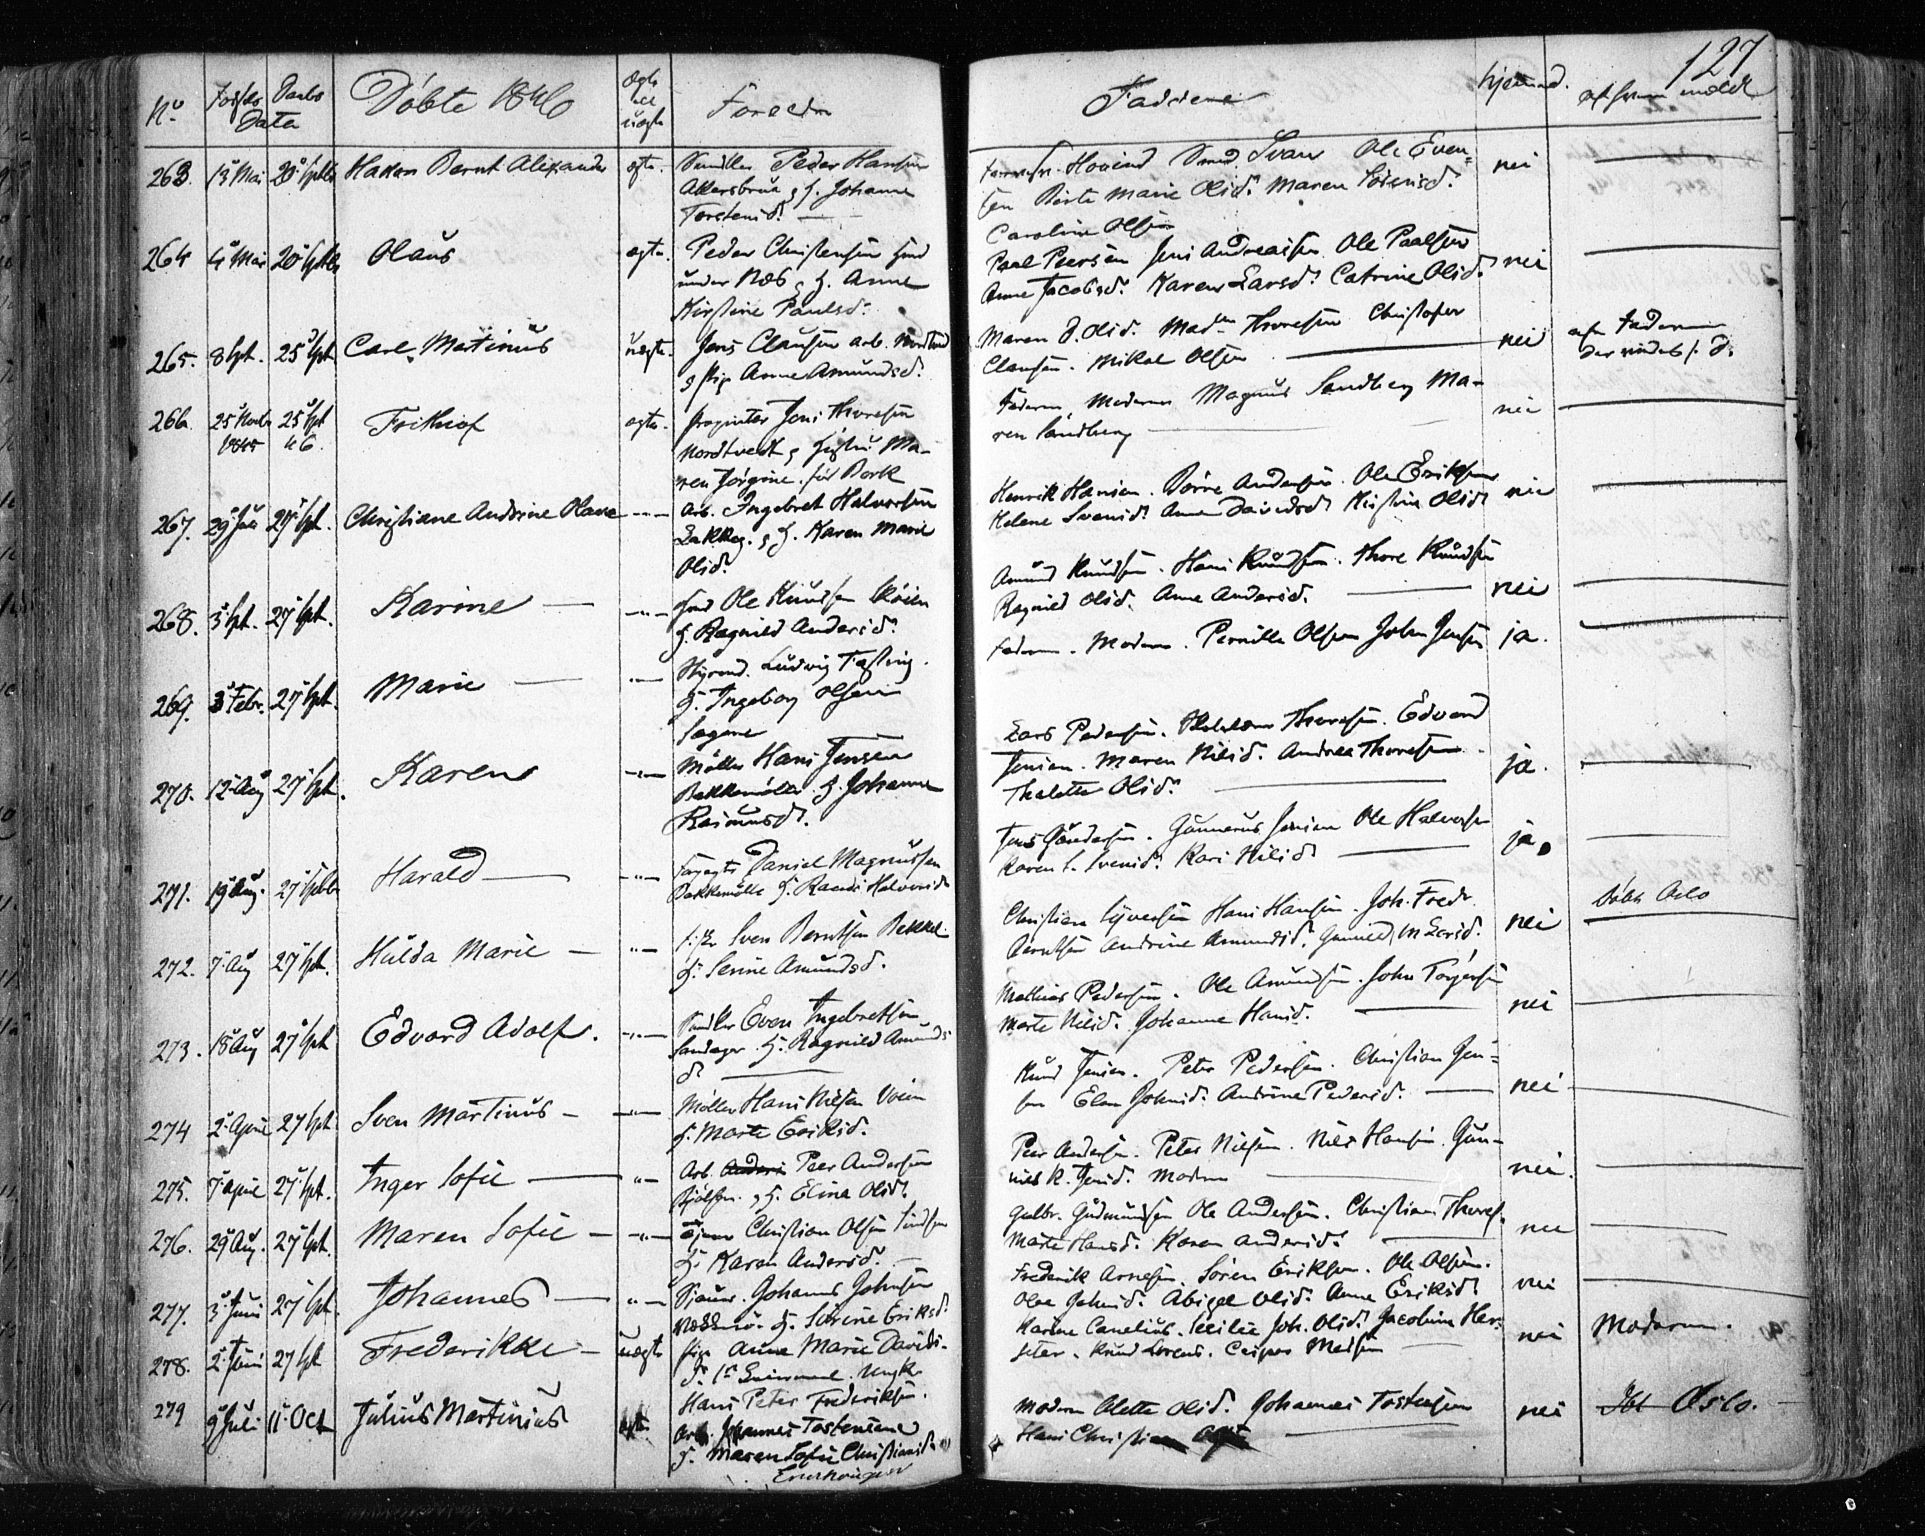 127
No Fødsels Daabs Data Døbte 1846 Ægte ell uægte Forældre Faddere hjemmed. af hvem meldt
263. 13 Mai 20 Sptbr Hakon Bernt Alexander ægte. Peder Hansen
Akersbrue g H. Johanne
Torstensd.
Hovind Ole Even=
sen Berte Marie Olsd. Maren Sørensd. nei
Caroline Olsen
264 4 Mai 20 Sptbr Olaus ægte. Peder Christensen Hmd
under Næs g H. Anne
Kirstine Paulsd.
Paal Peersen Jens Andreassen Ole Paalsen
Anne Jacobsd. Karen Larsd. Catrine Olsd. nei
265. 8 Spt. 25 Spt Carl Martinus uægte. Jens Clausen arb.
g pige Anne Amundsd.
Maren Olsd. Mad. Thoresen Christofer
Clausen. Mikal Olsen nei af Faderen
266. 25 Novbr 1845 25 Spt 46. Frithiof ægte. Jens Thoresen
Nordtvedt g Hustru Ma-
ren Jørgine før Bork
Faderen, Moderen Magnus Sandberg Ma-
ren Sandberg nei
267. 29 Juli 27 Spt. Christiane Andrine Olava Arb. Ingebret Halvorsen
g H. Karen Marie
Olsd.
Henrik Hansen. Børre Andersen. Ole Eriksen
Helene Svensd. Anne Davidsd Kirstine Olsd nei
268. 5 Spt. 27 Spt. Karine Hmd Ole Knudsen
H Ragnild Andersd.
Amund Knudsen. Hans Knudsen. Thore Knudsen
Ragnild Olsd. Anne Andersd. nei
269. 3 Febr. 27 Spt. Marie Styrmd. Ludvig Fasting.
H. Ingeborg Olsen
Sagene
Faderen. Moderen. Pernille Olsen John Jensen ja.
270. 12 Aug 27 Spt. Karen Møller Hans Jensen
Bakkemølle. H. Johanne
Rasmusd.
Lars Pedersen. Thoresen. Edvard
Jensen. Maren Nilsd. Andrea Thoresen
Thalette Olsd. ja.
271. 19 Aug. 27 Sptbr Harald Daniel Magnussen
Bakkemølle H. Randi Halvorsd
Jens Gundersen. Gunnerus Jensen Ole Halvorsen
Karen L. Svensd. Kari Nilsd ja.
272. 7 Aug 27 Spt. Hulda Marie Sven Berntsen Bekkel.
H. Serine Amundsd.
Christian Syversen Hans Hansen. Joh. Fredr.
Berntsen Andrine Amundsd. Gunild M Larsd. nei døbt Oslo
273. 18 Aug 27 Spt Edvard Adolf. Even Ingebretsen
Sandager H. Ragnild Amunds
d.
Mathias Pedersen. Ole Amundsen. John Torgersen
Marte Nilsd. Johanne Hansd. nei
274 2 April 27 Spt. Sven Martinus Møller Hans Nilsen Voien
H. Marte Eriksd.
Knud Jensen. Peter Pedersen. Christian Jen=
sen Elen Johnsd. Andrine Pedersd. nei
275. 7 april 27 Spt. Inger Sofie Arb. Peer Andersen
g H. Elina Olsd.
Peer Andersen. Peter Nilsen. Nils Hansen. Gun-
nild K. Jensd. Modern nei.
276. 29 Aug. 27 Spt. Maren Sofie Christian Olsen
H. Karen Andersd.
Gulbr. Gudmundsen Ole Andersen. Christian Thores.
Marte Hansd. Karen Andersd. nei
277. 3 Juni 27 Spt. Johannes Johannes Johnsen
H. Sørine Eriksd.
Frederik Arnesen. Søren Eriksen. Ole Olsen.
Olea Johnsd. Abigel Olsd. Anne Eriksd. nei
278. 2 Juni 27 Spt Frederikke uægte Pige Anne Marie Davids-
d. Ungk.
Hans Peter Frederiksen.
Karine Canelius. Cecilie Joh. Olsd. Jacobine Her-
seter. Knud Lorens. Casper Madsen nei Moderen.
279 9 Juli 11 Oct Julius Martinius ægte Arb. Johannes Tostensen
H. Maren Sofie Christiansd.
Enerhougen
Modern Olette Olsd. Johannes Tostensen
Hans Christian nei Oslo.